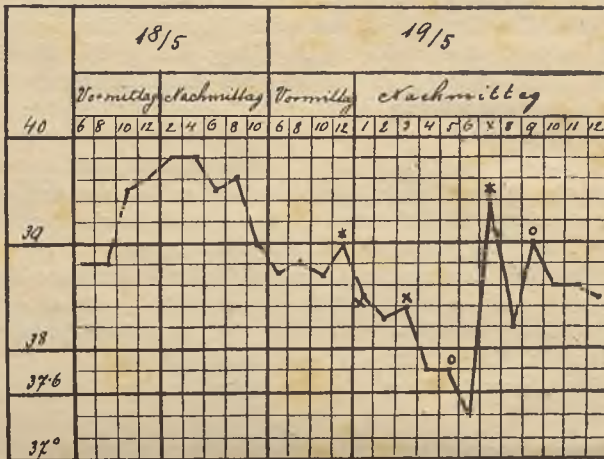 18/5 19/5
Vormittag Nachmittag Vormittag Nachmittag
40 6 8 10 12 2 4 6 8 10 6 8 10 12 1 2 3 4 5 6 7 8 9 10 11 12
39
38
37·6
37°